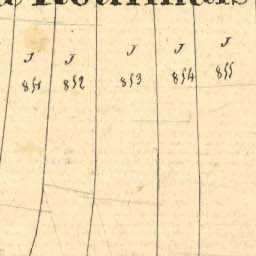 J J J J J
851 852 853 854 855